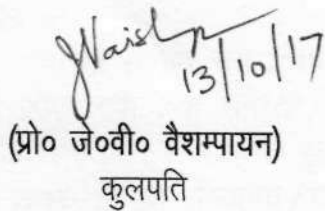 JVaish
13/10/17
(प्रो० जे०वी० वैशम्पायन)
कुलपति